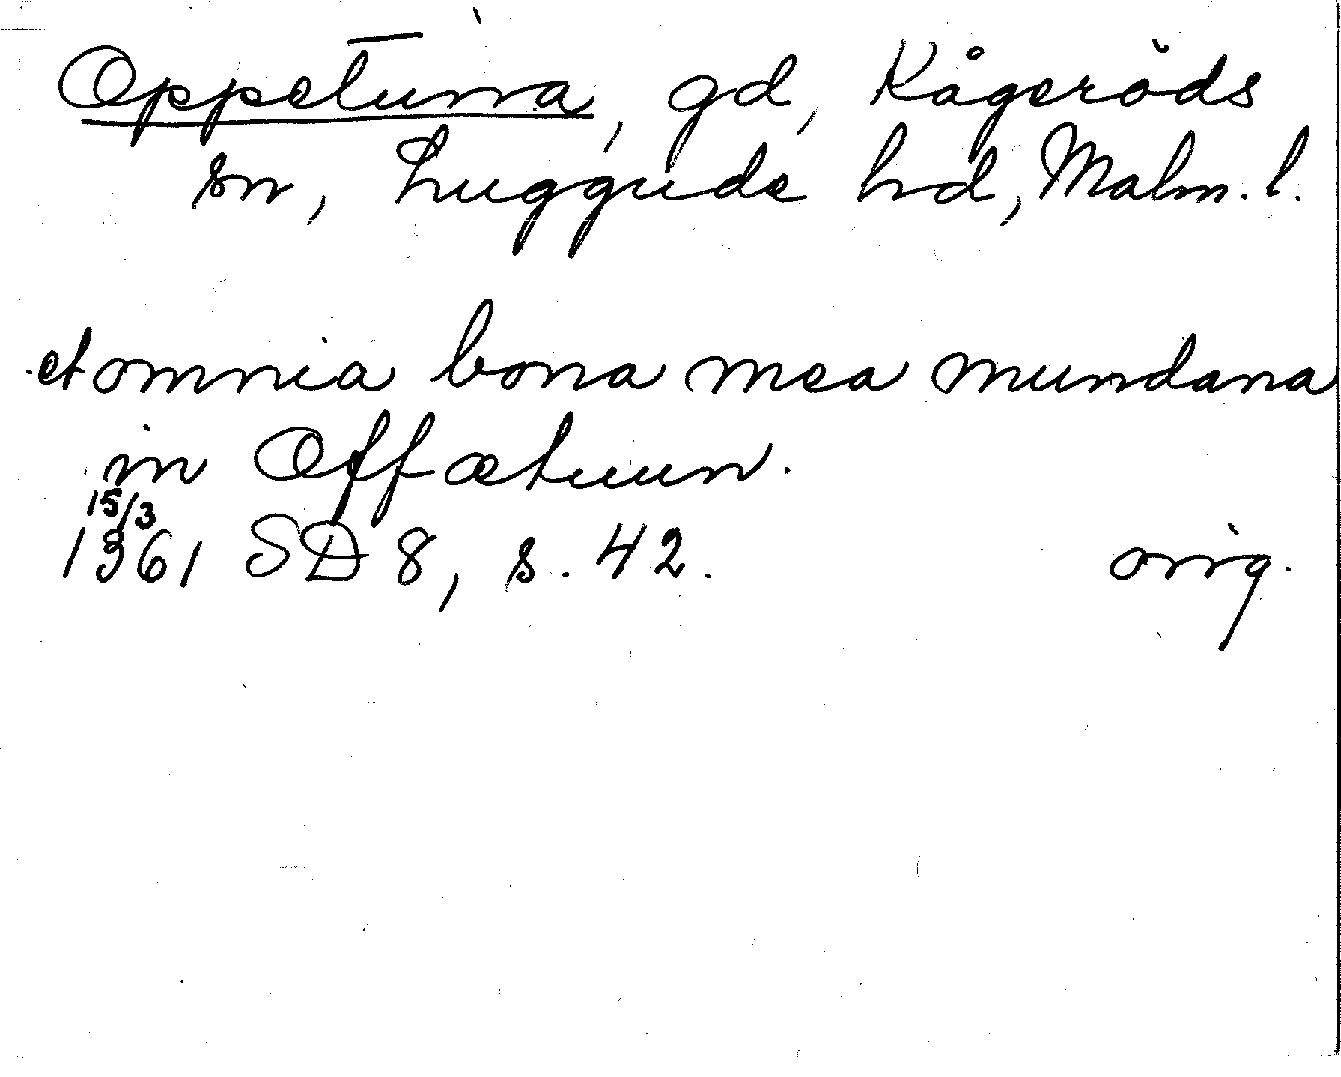 Oppetuna, gd, Kågeröds
sn, Luggude hd, Malm. l.
et omnia bona mea mundana
in Offætuun.
15/3
1361 SD 8, s. 42. orig.